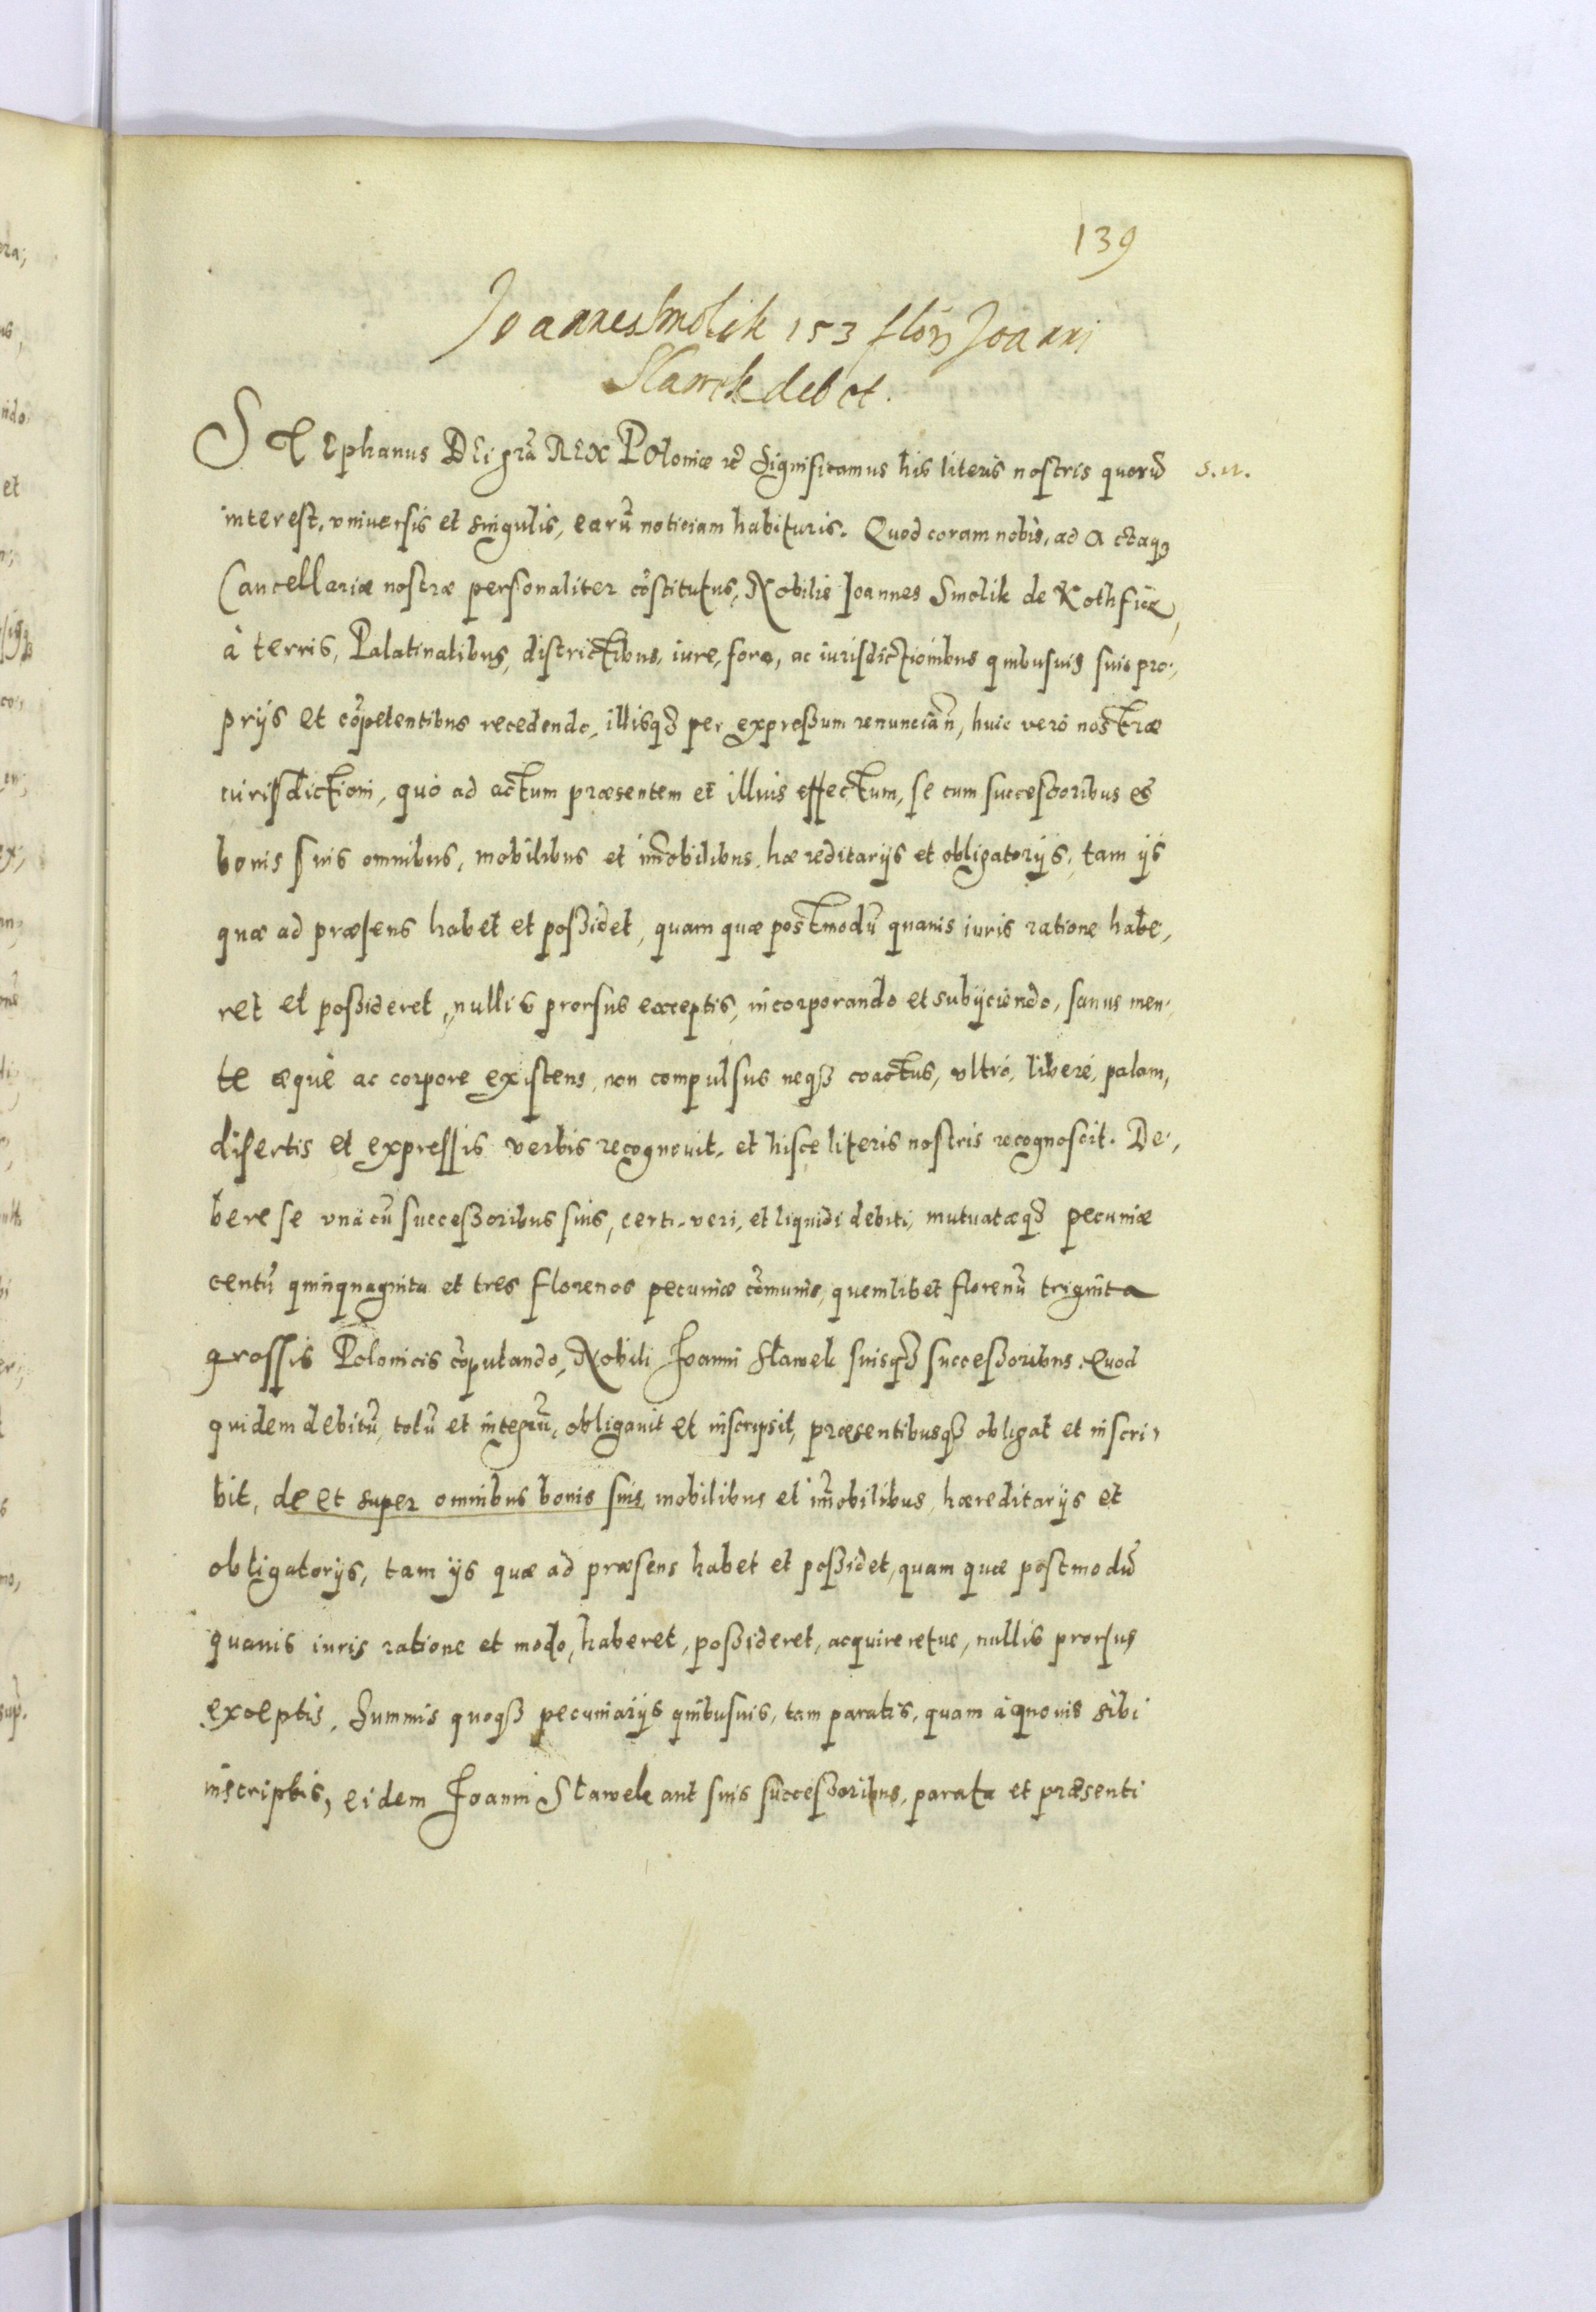 139
Joannes Smolik 153 flor̃ Joanni
Slawek debet.
STEphanus DEi grã REX Poloniæ etc̃ Significamus his literis nostris quorũ
s. n.
interest, vniuersis et singulis, earũ noticiam habituris. Quod coram nobis, ad Actaq3
Cancellariæ nostræ personaliter cõstitutus, Nobilis Joannes Smolik de Kothficz,
à terris, Palatinatibus, districtibus, iure, foro, ac iurisdictionibus quibusuis suis pro,
prijs et cõpetentibus recedendo, illisq3 per expressum renuncian̄, huic verò nostræ
iurisdictioni, quò ad actum præsentem et illius effectum, se cum successoribus et
bonis suis omnibus, mobilibus et im̃obilibus, hæreditarijs et obligatorijs, tam ijs
quæ ad præsens habet et possidet, quam quæ postmodũ quauis iuris ratione habe,
ret et possideret, nullis prorsus exceptis, incorporando et subijciendo, sanus men,
te æquè ac corpore existens, non compulsus neq3 coactus, vltrò, liberè, palam,
disertis et expressis verbis recognouit, et hisce literis nostris recognoscit. De,
bere se vnà cũ successoribus suis, certi, veri, et liquidi debiti, mutuatæq3 pecuniæ
centũ quinquaginta et tres florenos pecuniæ cõmunis, quemlibet florenũ triginta
grossis Polonicis cõputando, Nobili Joanni Slawek suisq3 successoribus. Quod
quidem debitũ, totũ et integrũ, obligauit et inscripsit, præsentibusq3 obligat et inscri,
bit, de et super omnibus bonis suis mobilibus et im̃obilibus, hæreditarijs et
obligatorijs, tam ijs quæ ad præsens habet et possidet, quam quæ postmodũ
quauis iuris ratione et modo, haberet, possideret, acquireretue, nullis prorsus
exceptis, Summis quoq3 pecuniarijs quibusuis, tam paratis, quam à quouis sibi
inscriptis, eidem Joanni Slawek aut suis successoribus, parata et præsenti